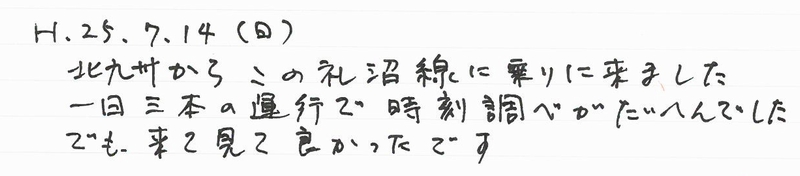 H.25.7.14(日)
北九州からこの札沼線に乗りに来ました
一日三本の運行で時刻調べがたいへんでした
でも、来て見て良かったです